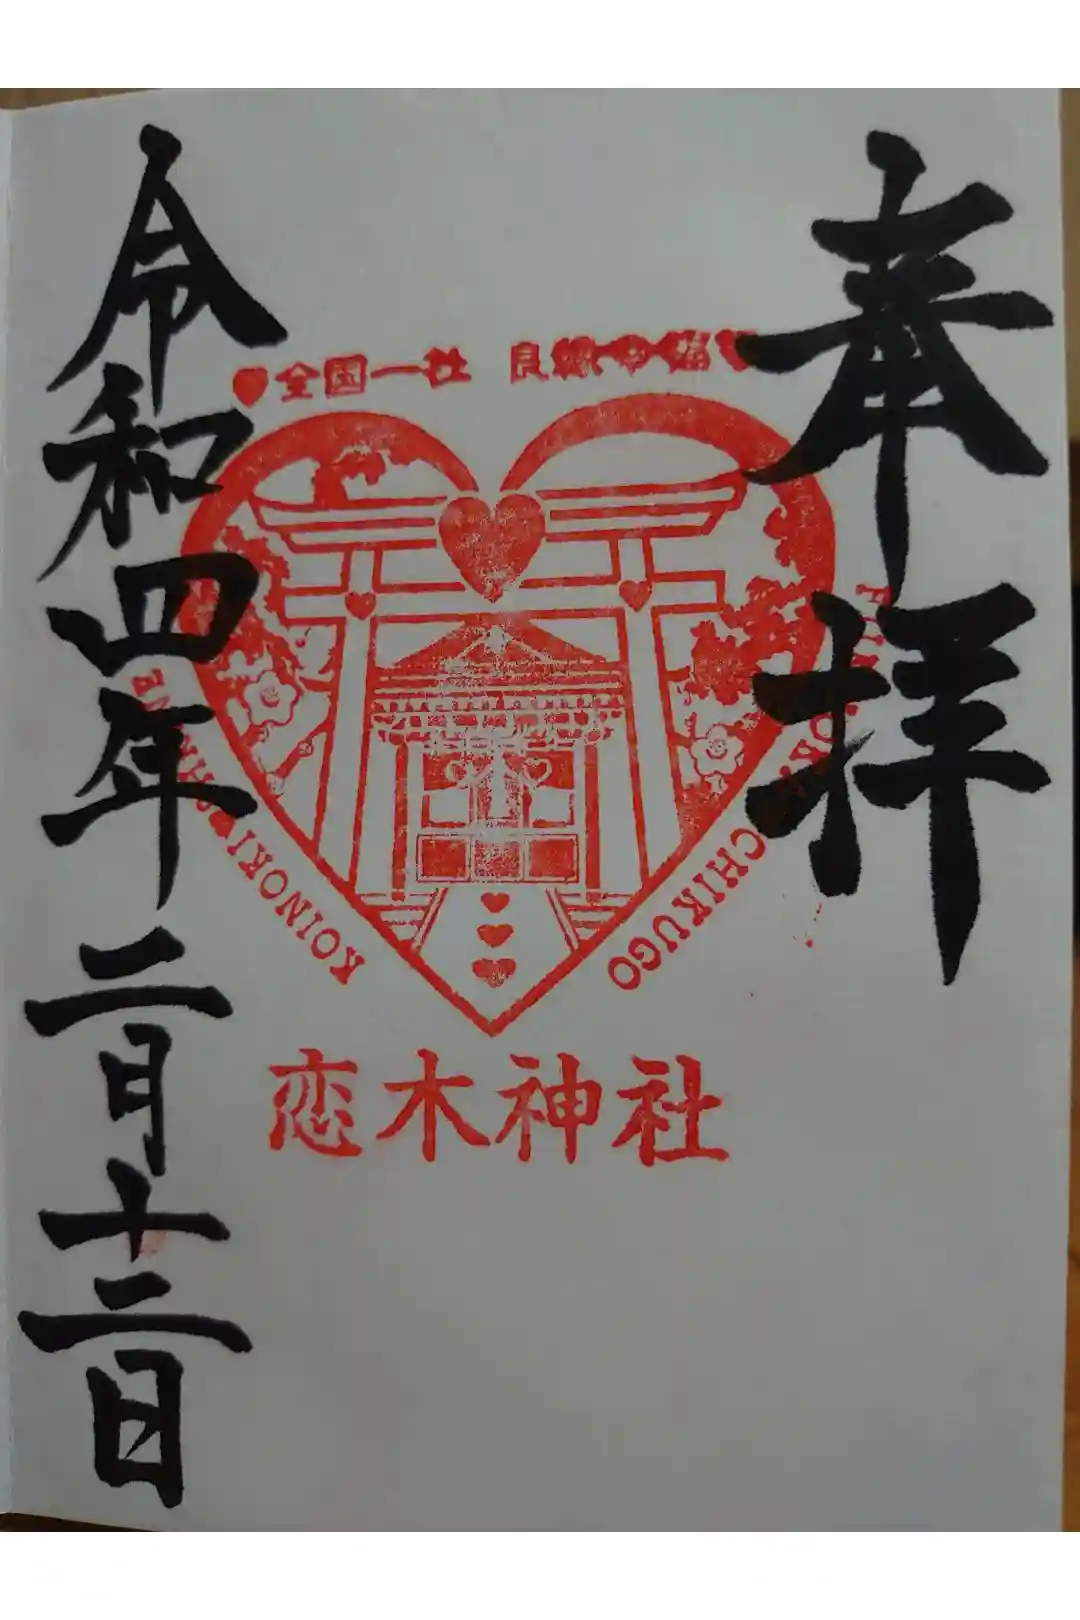 奉拝
♥全国一社 良縁幸福♥
KOINOKI SHRINE
FUKUOKA CHIKUGO
恋木神社
令和四年二月十二日